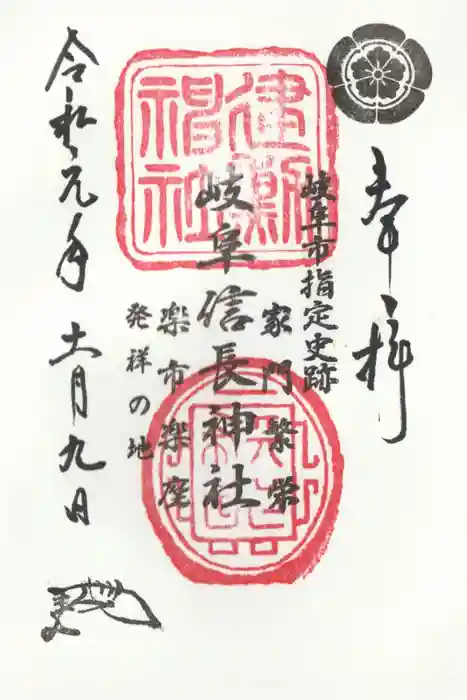 奉拝
岐阜市指定史跡
家門繁栄
岐阜信長神社
楽市楽座
発祥の地
令和元年十一月九日
建勲神社
天下布武